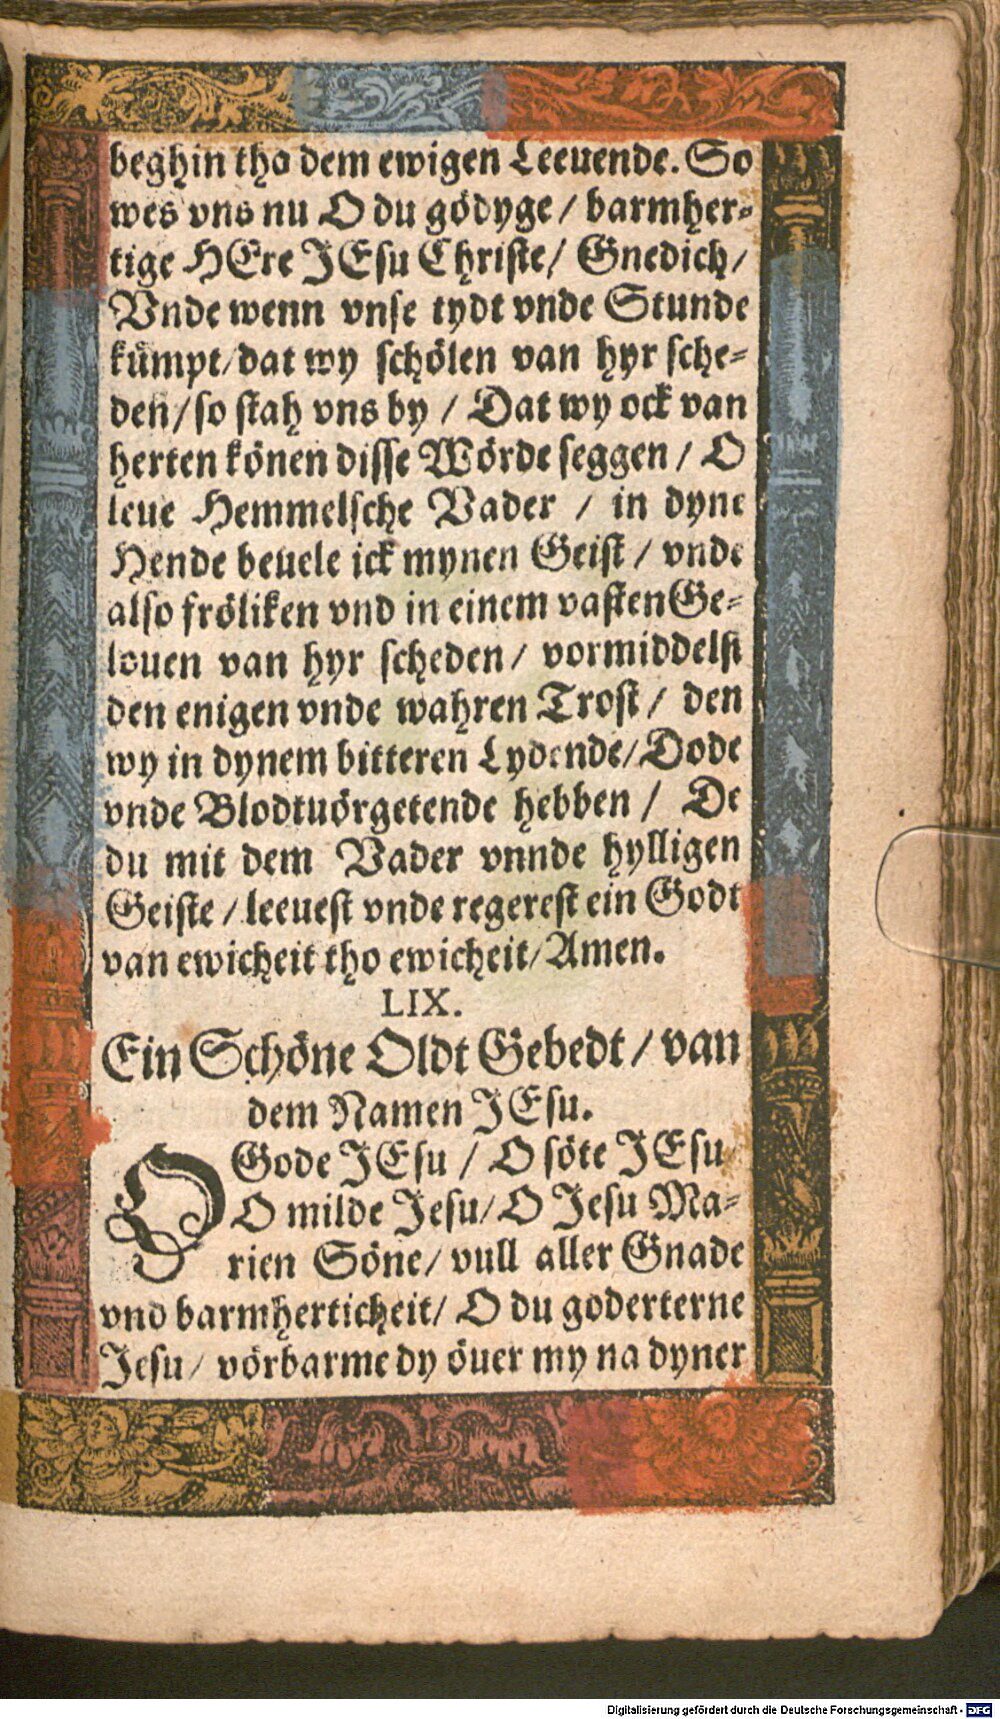 beghin tho dem ewigen Leeuende. So
wes vns nu O du gödyge / barmher-
tige HEre JEsu Christe / Gnedich /
Vnde wenn vnse tydt vnde Stunde
kümpt / dat wy schölen van hyr sche-
den / so stah vns by / Dat wy ock van
herten könen disse Wörde seggen / O
leue Hemmelsche Vader / in dyne
Hende beuele ick mynen Geist / vnde
also fröliken vnd in einem vasten Ge-
louen van hyr scheden / vormiddelst
den enigen vnde wahren Trost / den
wy in dynem bitteren Lydende / Dode
vnde Blodtuörgetende hebben / De
du mit dem Vader vnnde hylligen
Geiste / leeuest vnde regerest ein Godt
van ewicheit tho ewicheit / Amen.
LIX.
Ein Schöne Oldt Gebedt / van
dem Namen JEsu.
O Gode JEsu / O söte JEsu
O milde Jesu / O Jesu Ma-
rien Söne / vull aller Gnade
vnd barmherticheit / O du goderterne
Jesu / vörbarme dy öuer my na dyner
Digitalisierung gefördert durch die Deutsche Forschungsgemeinschaft - DFG